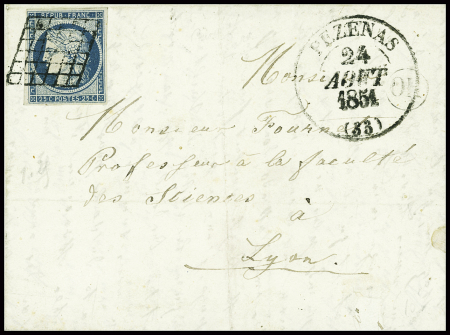 REPUB. FRANC.
25 C POSTES 25 C
PEZENAS
24
AOUT
1851
(33)
OR
Monsieur
Monsieur
Professeur à la faculté
des Sciences
à
Lyon.